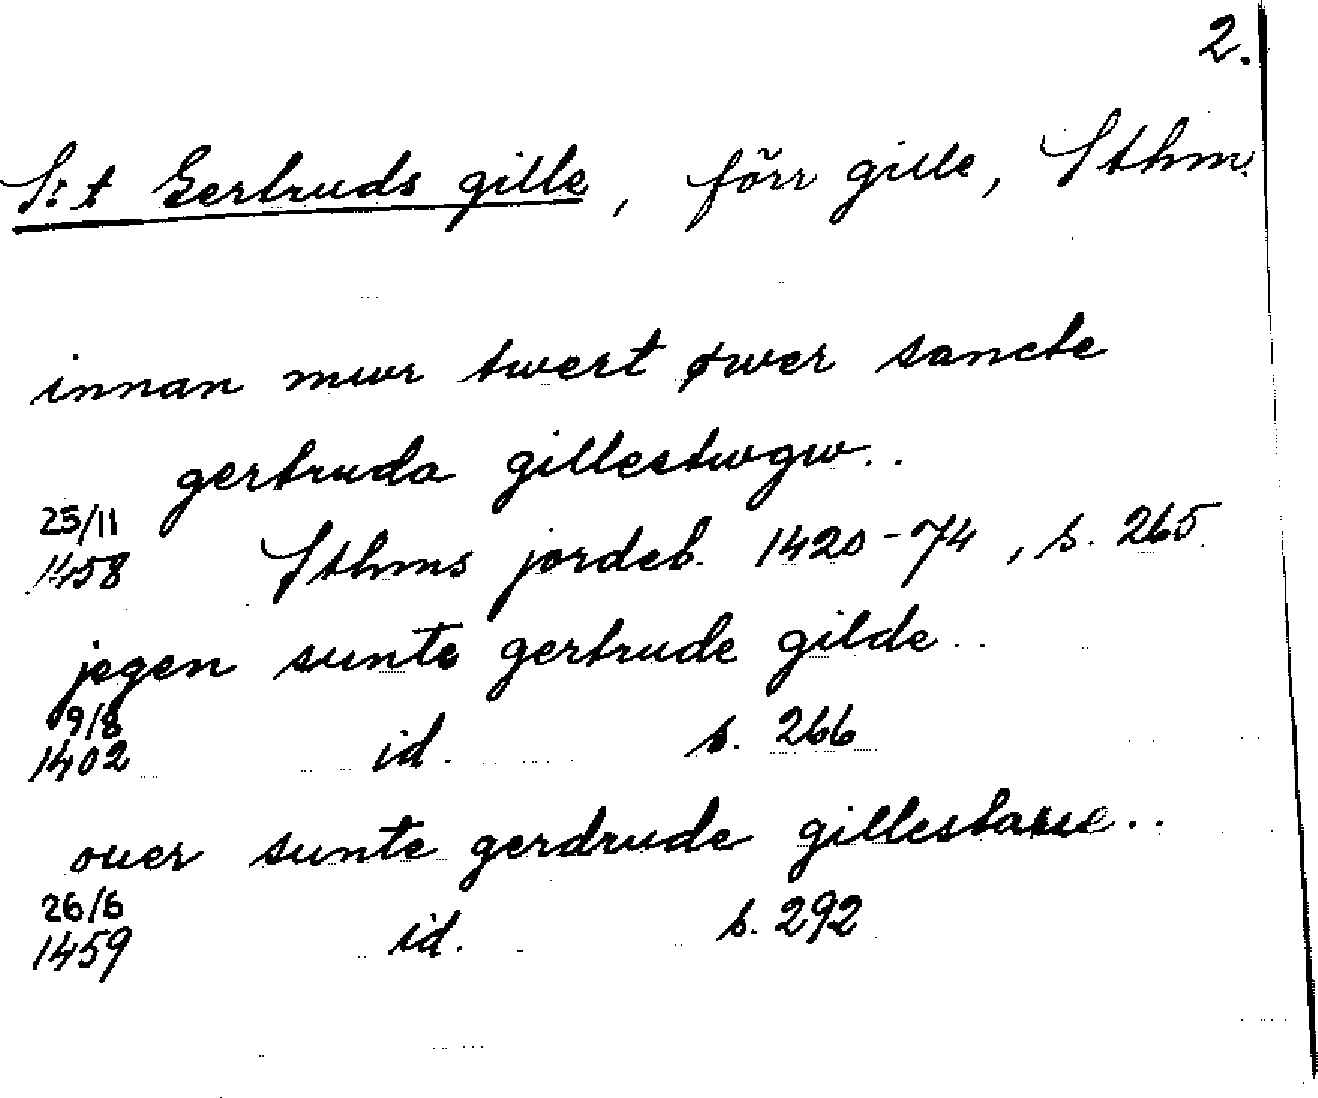 2.
S:t Gertruds gille, förr gille, Sthm.
innan mwr twert øwer sancte
gertruda gillestwgw..
25/11
1458 Sthms jordeb. 1420-74, s. 265.
jegen sunte gertrude gilde..
9/8
1402 id. s. 266
ouer sunte gerdrude
26/6
1459 id. s. 292